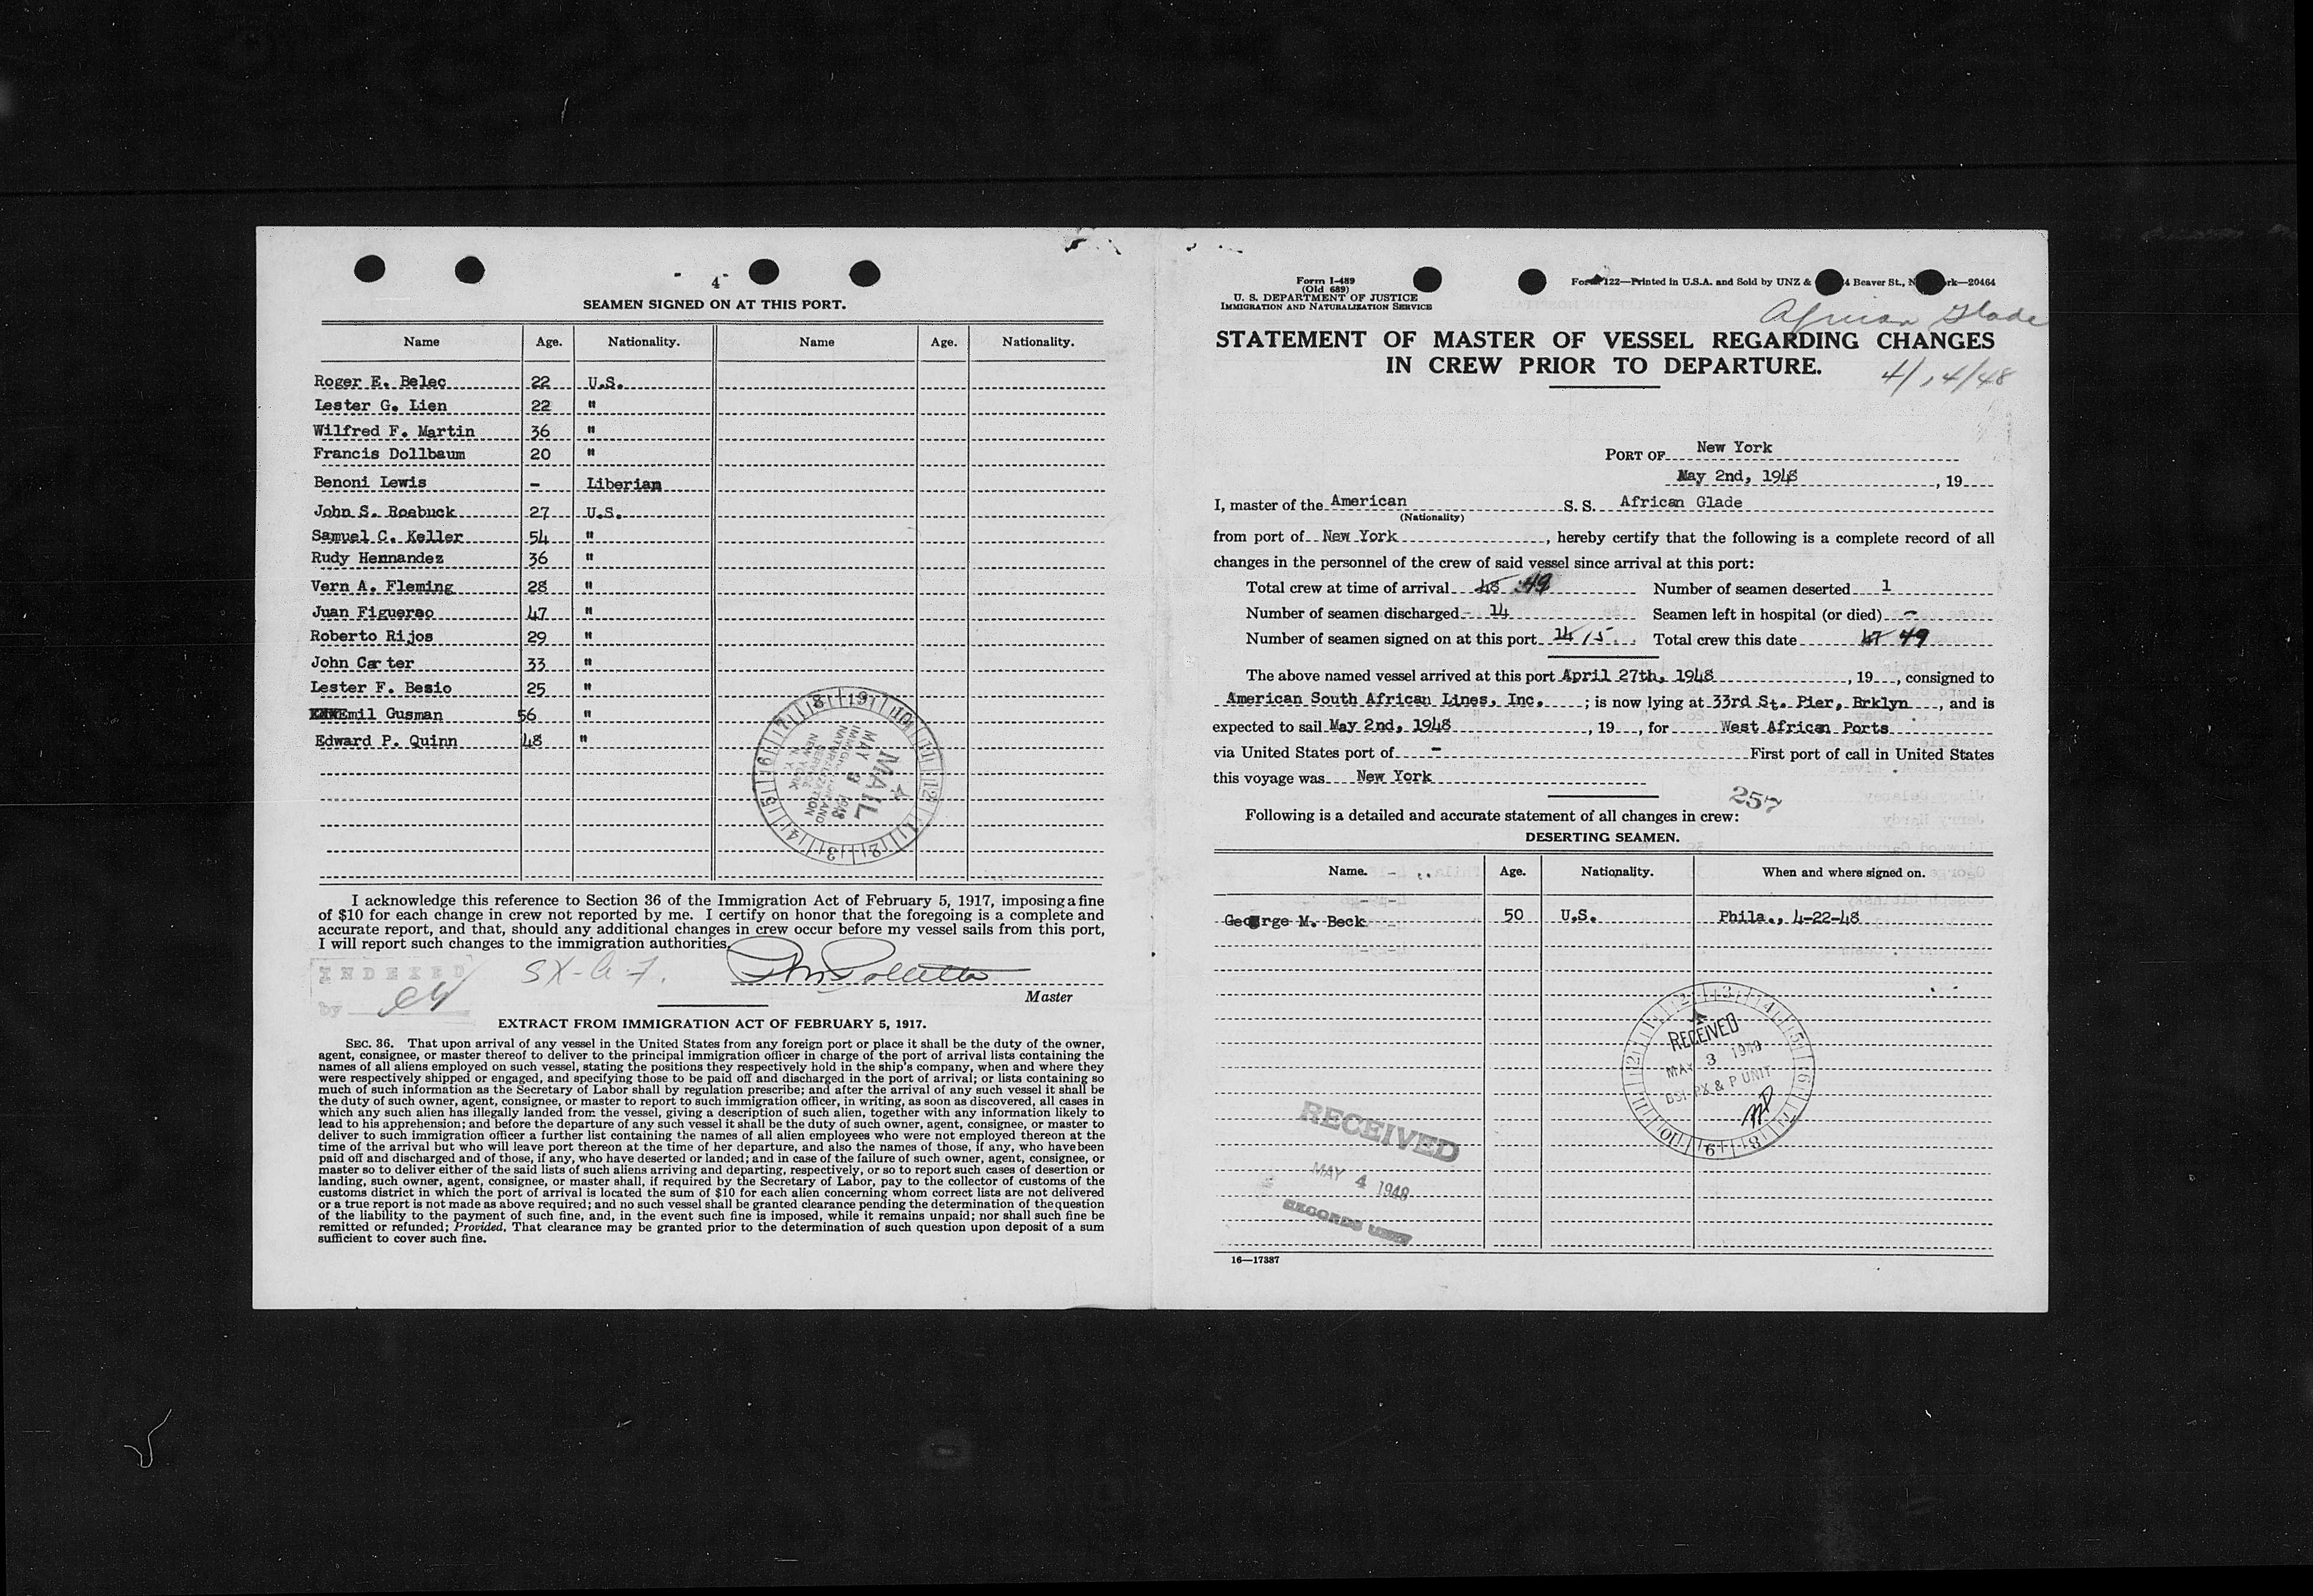 4
SEAMEN SIGNED ON AT THIS PORT.
Name Age. Nationality. Name Age. Nationality.
Roger E. Belec 22 U.S.
Lester G. Lien 22 "
Wilfred F. Martin 36 "
Francis Dollbaum 20 "
Benoni Lewis - Liberian
John S. Roebuck 27 U.S.
Samuel C. Keller 54 "
Rudy Hernandez 36 "
Vern A. Fleming 28 "
Juan Figuerao 47 "
Roberto Rijos 29 "
John Carter 33 "
Lester F. Besio 25 "
Emil Gusman 56 "
Edward P. Quinn 48 "
MAIL
MAY 3 1948
IMMIGRATION AND
NATURALIZATION
SERVICE
NEW YORK
N. Y.
I acknowledge this reference to Section 36 of the Immigration Act of February 5, 1917, imposing a fine
of $10 for each change in crew not reported by me. I certify on honor that the foregoing is a complete and
accurate report, and that, should any additional changes in crew occur before my vessel sails from this port,
I will report such changes to the immigration authorities.
INDEXED
by
Master
EXTRACT FROM IMMIGRATION ACT OF FEBRUARY 5, 1917.
SEC. 36. That upon arrival of any vessel in the United States from any foreign port or place it shall be the duty of the owner,
agent, consignee, or master thereof to deliver to the principal immigration officer in charge of the port of arrival lists containing the
names of all aliens employed on such vessel, stating the positions they respectively hold in the ship's company, when and where they
were respectively shipped or engaged, and specifying those to be paid off and discharged in the port of arrival; or lists containing so
much of such information as the Secretary of Labor shall by regulation prescribe; and after the arrival of any such vessel it shall be
the duty of such owner, agent, consignee, or master to report to such immigration officer, in writing, as soon as discovered, all cases in
which any such alien has illegally landed from the vessel, giving a description of such alien, together with any information likely to
lead to his apprehension; and before the departure of any such vessel it shall be the duty of such owner, agent, consignee, or master to
deliver to such immigration officer a further list containing the names of all alien employees who were not employed thereon at the
time of the arrival but who will leave port thereon at the time of her departure, and also the names of those, if any, who have been
paid off and discharged and of those, if any, who have deserted or landed; and in case of the failure of such owner, agent, consignee, or
master so to deliver either of the said lists of such aliens arriving and departing, respectively, or so to report such cases of desertion or
landing, such owner, agent, consignee, or master shall, if required by the Secretary of Labor, pay to the collector of customs of the
customs district in which the port of arrival is located the sum of $10 for each alien concerning whom correct lists are not delivered
or a true report is not made as above required; and no such vessel shall be granted clearance pending the determination of the question
of the liability to the payment of such fine, and, in the event such fine is imposed, while it remains unpaid; nor shall such fine be
remitted or refunded; Provided, That clearance may be granted prior to the determination of such question upon deposit of a sum
sufficient to cover such fine.
Form I-489
(Old 689)
U. S. DEPARTMENT OF JUSTICE
IMMIGRATION AND NATURALIZATION SERVICE
Form 122—Printed in U.S.A. and Sold by UNZ & Beaver St., —20464
African Glade
STATEMENT OF MASTER OF VESSEL REGARDING CHANGES
IN CREW PRIOR TO DEPARTURE.
PORT OF New York
May 2nd, 1948, 19
I, master of the American S. S. African Glade
(Nationality)
from port of New York, hereby certify that the following is a complete record of all
changes in the personnel of the crew of said vessel since arrival at this port:
Total crew at time of arrival 48 49 Number of seamen deserted 1
Number of seamen discharged - 14 Seamen left in hospital (or died) -
Number of seamen signed on at this port 14 15 Total crew this date 47 49
The above named vessel arrived at this port April 27th, 1948, 19, consigned to
American South African Lines, Inc. ; is now lying at 33rd St. Pier, Brklyn, and is
expected to sail May 2nd, 1948, 19, for West African Ports
via United States port of - First port of call in United States
this voyage was New York
257
Following is a detailed and accurate statement of all changes in crew:
DESERTING SEAMEN.
Name. Age. Nationality. When and where signed on.
George M. Beck 50 U.S. Phila., 4-22-48
RECEIVED
MAY 3 1948
BSI-PX & P UNIT
RECEIVED
MAY 4 1948
RECORDS
16—17387